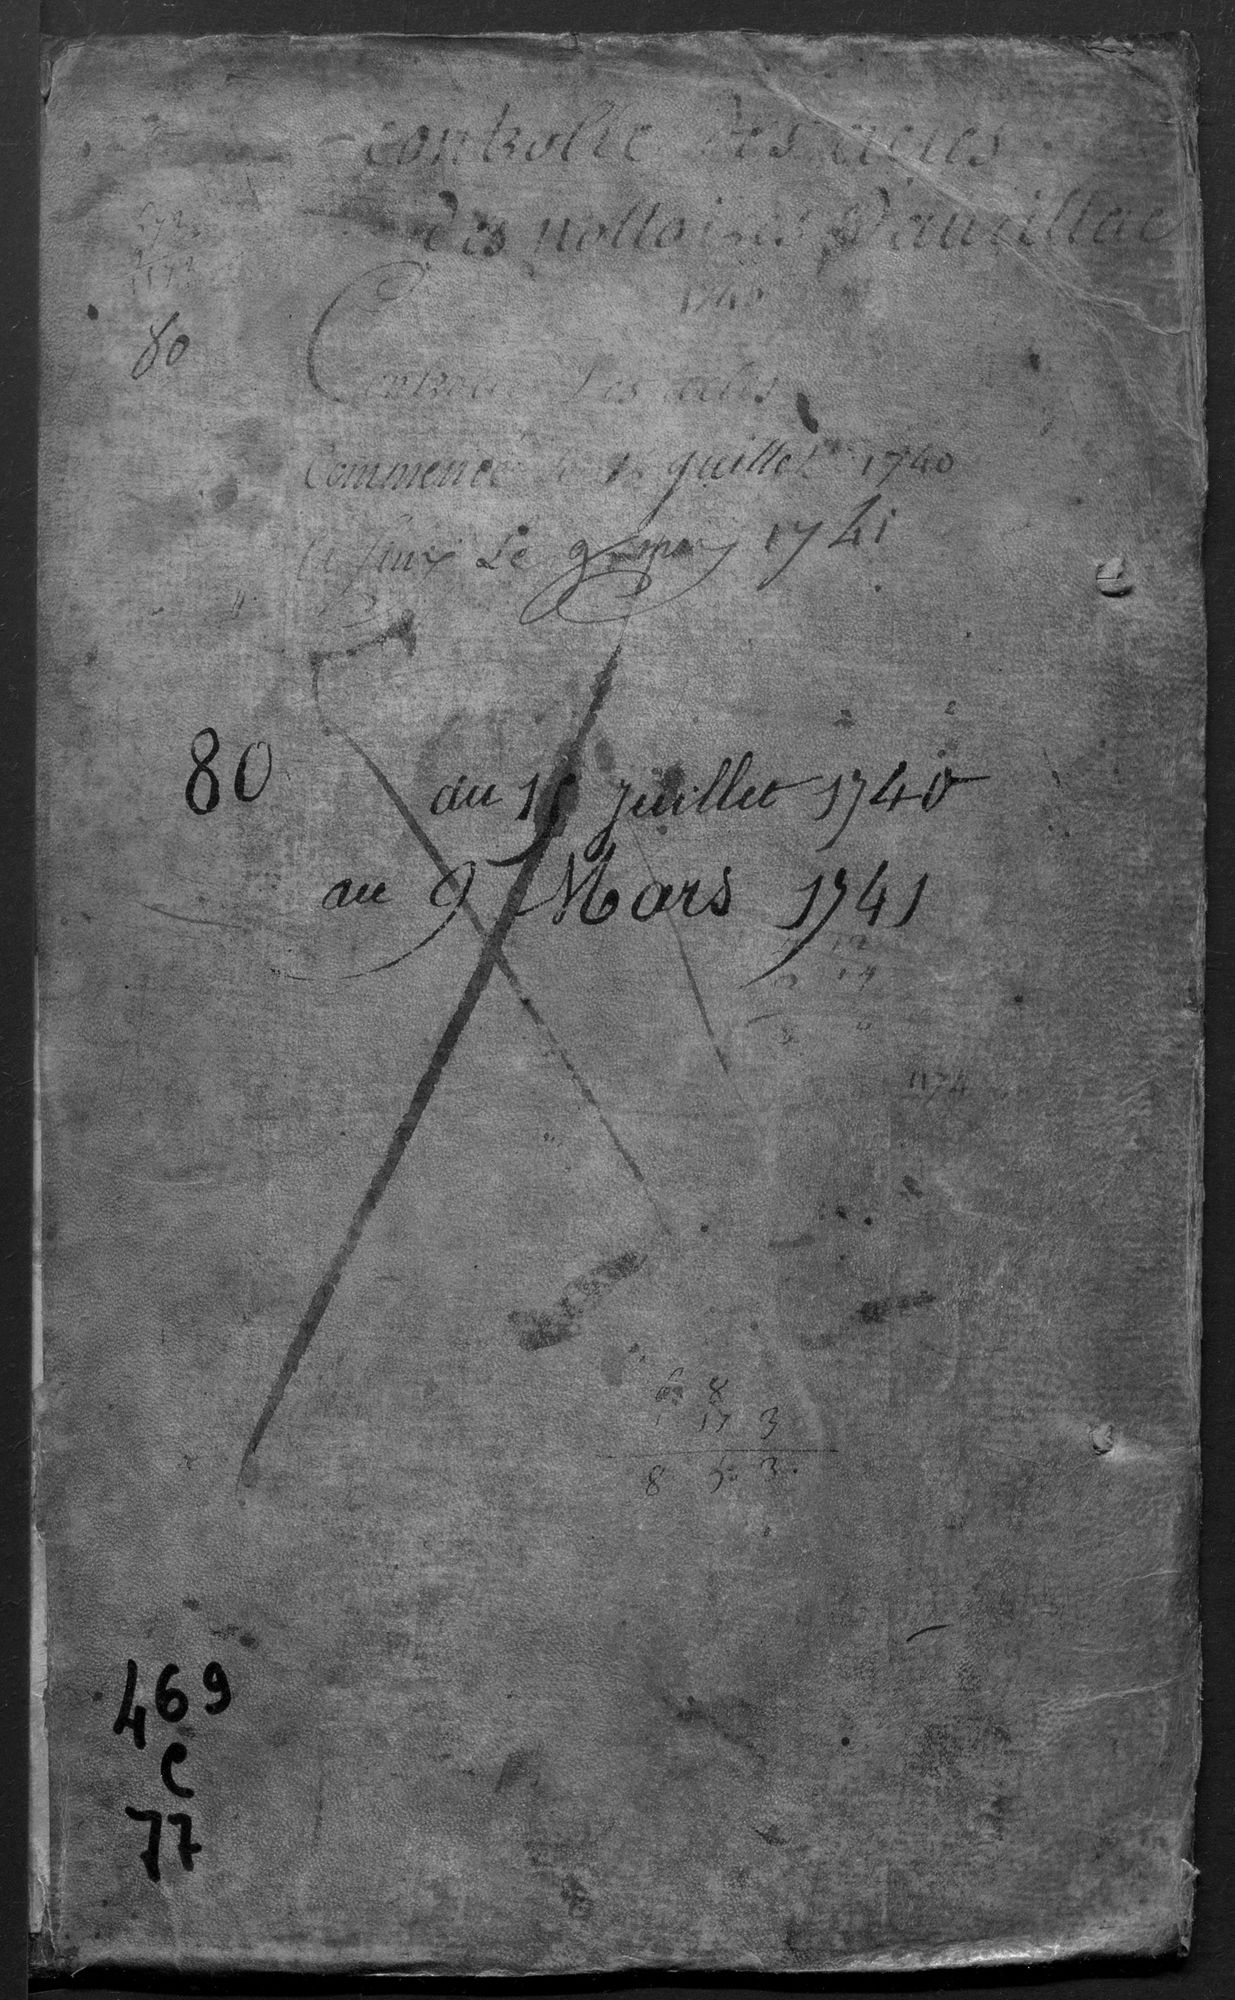 controlle des actes
des nottaires Daurillac
1740
80
Controlle Des actes
Commencé le 15 juillet 1740
et finy Le 9 mars 1741
80 du 15 juillet 1740
au 9 Mars 1741
12
19
1174
6 8
1 17 3
8 5 3
469
C
77